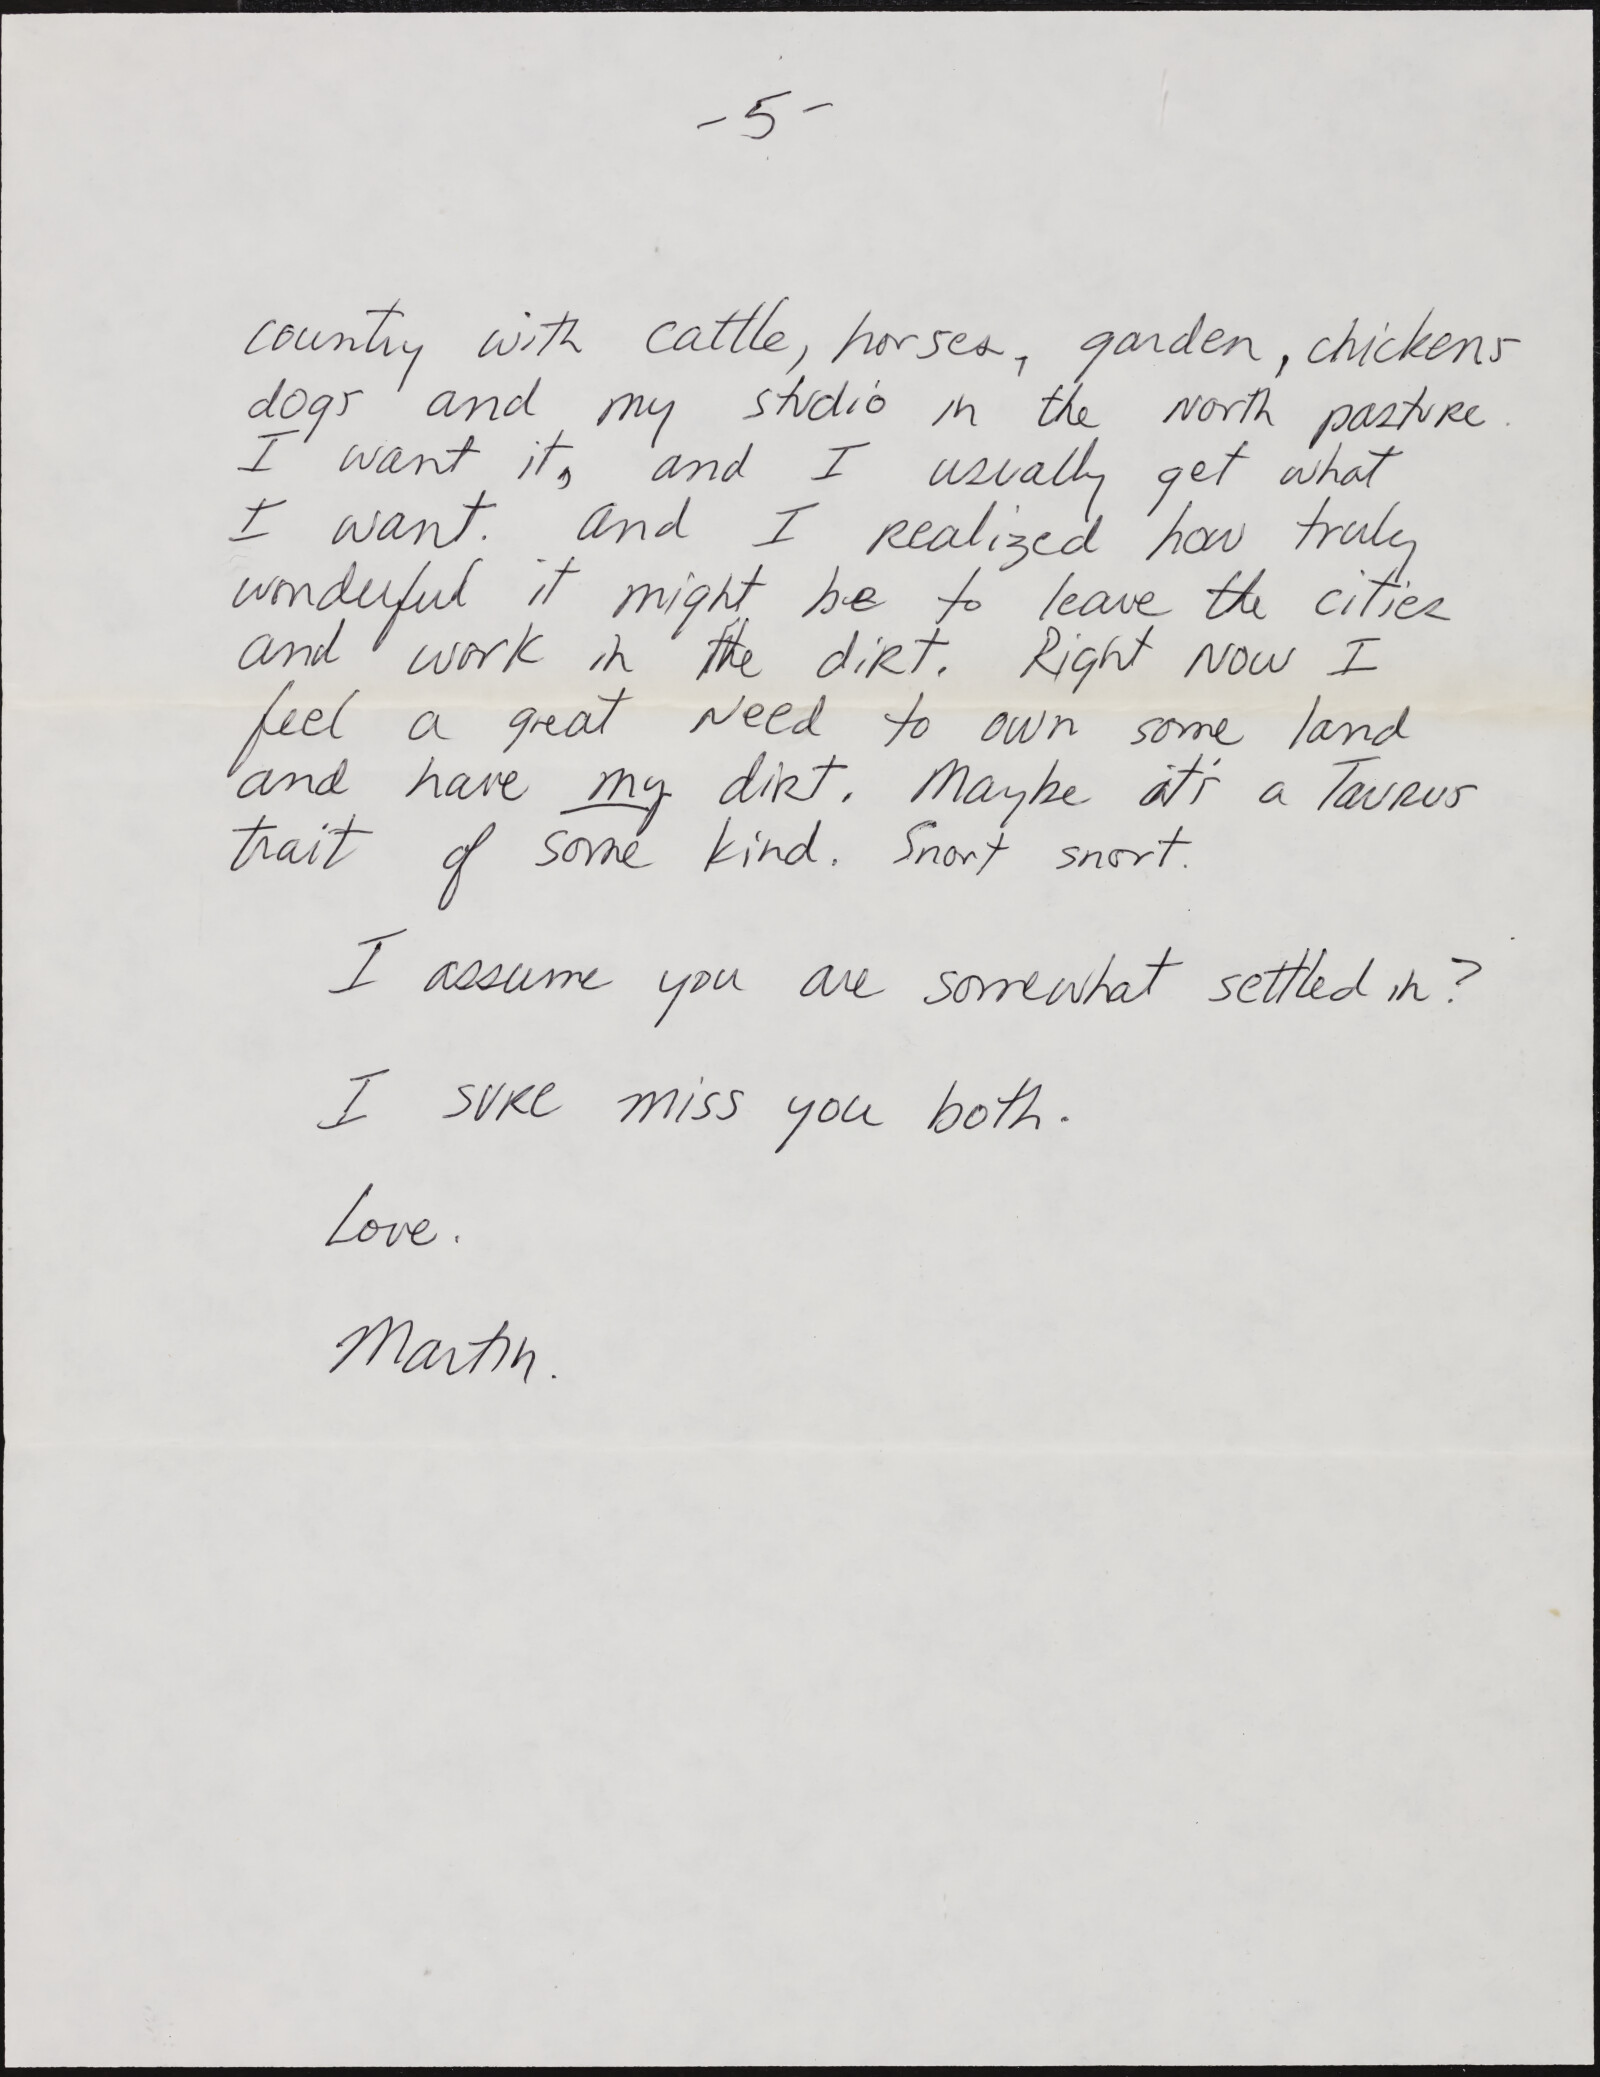 -5-
country with cattle, horses, garden, chickens
dogs and my studio in the north pasture.
I want it, and I usually get what
I want. And I realized how truly
wonderful it might be to leave the cities
and work in the dirt. Right now I
feel a great need to own some land
and have my dirt. Maybe it's a Taurus
trait of some kind. Snort snort.
I assume you are somewhat settled in?
I sure miss you both.
Love.
Martin.